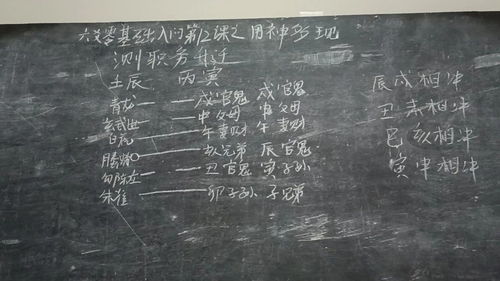 六爻零基础入门第12课之用神形现
测职务升迁
壬辰 丙寅
青龙 戌官鬼 戌官鬼
玄武世 申父母 申父母
白虎 午妻财 午妻财
腾蛇 亥兄弟 辰官鬼
勾陈应 丑官鬼 寅子孙
朱雀 卯子孙 子兄弟
辰戌相冲
丑未相冲
巳亥相冲
寅申相冲